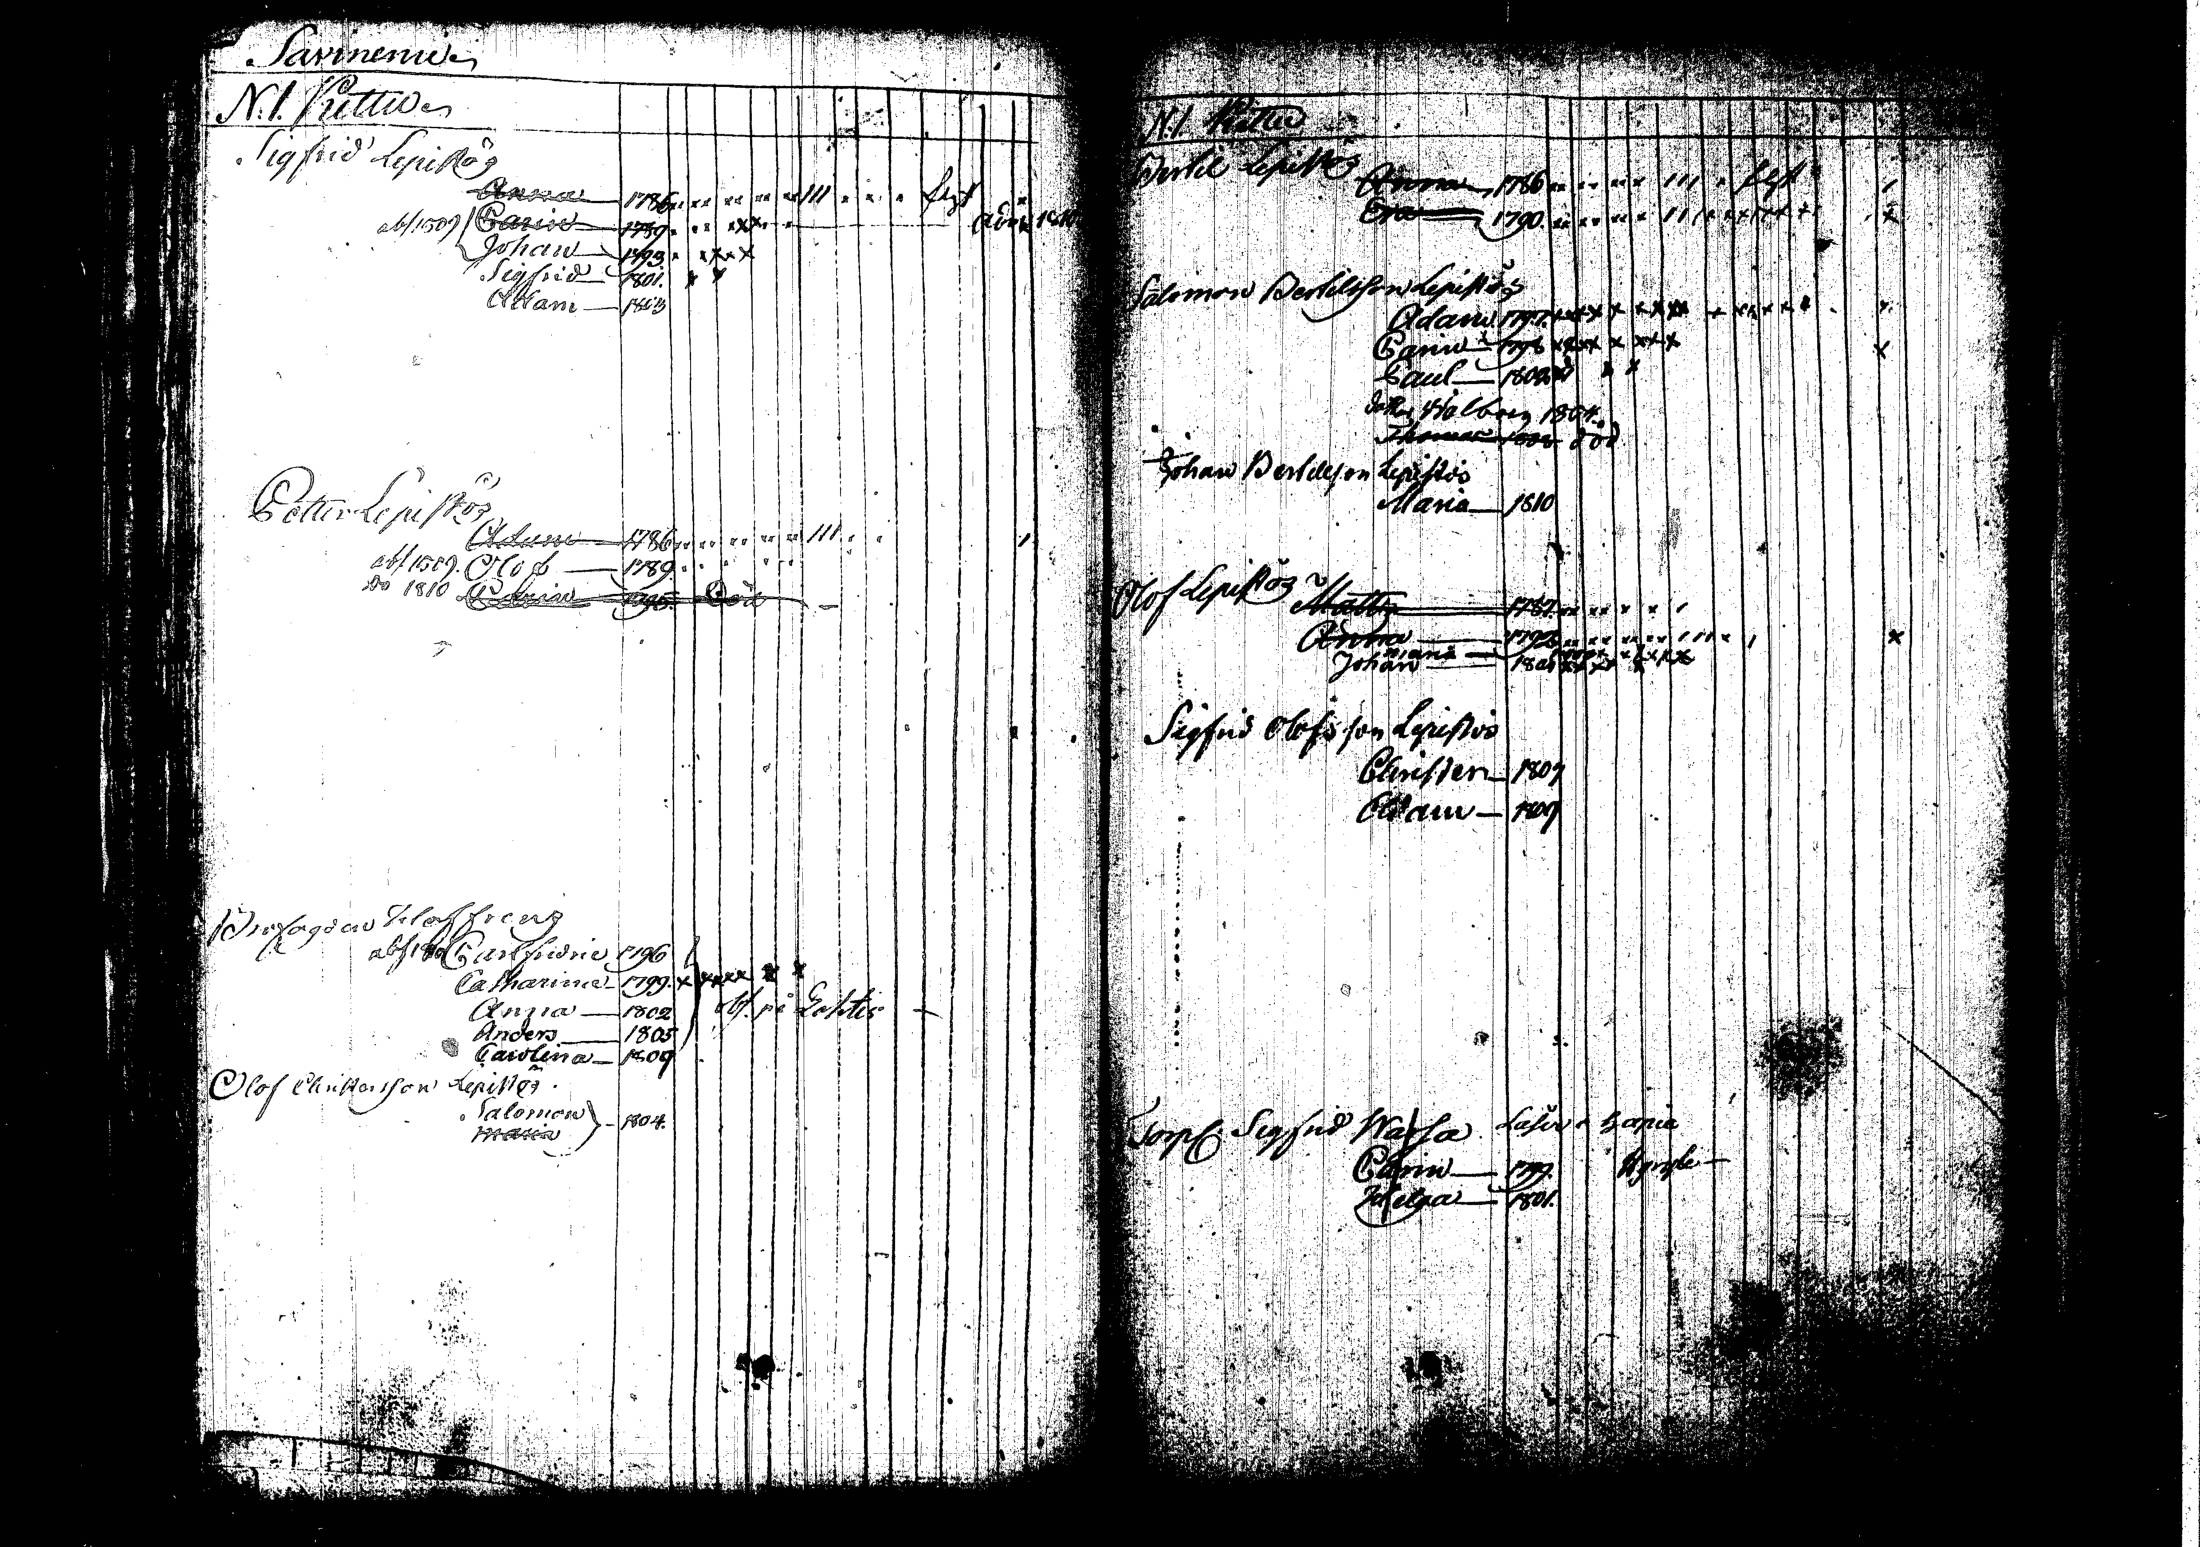 Savinemie
N:1. Kettu
Sigfrid Lepistös
Anna 1786 legt
abs. 1809 Carin 1789. adm 1810
Johan 1793
Sigfrid 1801.
Adam 1803
Petter Lepistös
Adam 1786
abs. 1809. Olof 1789.
Do 1810 Carin 1795. död
abs. 180 Carl Fredric 1796
Catharina 1799.
Anna 1802 abs. på
Anders 1805
Carolina 1809
Olof Christersson Lepistös
Salomon 1804.
Maria
N:1 Kettu
Bertil Lepistös
Anna 1786 legt
Eva 1790.
Salomon Bertilsson Lepistös
Adam 1797.
Carin 1798
Paul 1802
Walborg 1804.
Thomas död
Johan Bertilsson Lepistös
Maria 1810
Olof Lepistös
Matts 1787.
Anna 1792
Maria
Johan 180
Sigfrid Olofsson Lepistös
Christer 1807
Adam 1809
Torp. Sigfrid Warsa
Carin 1799.
Helga 1801.